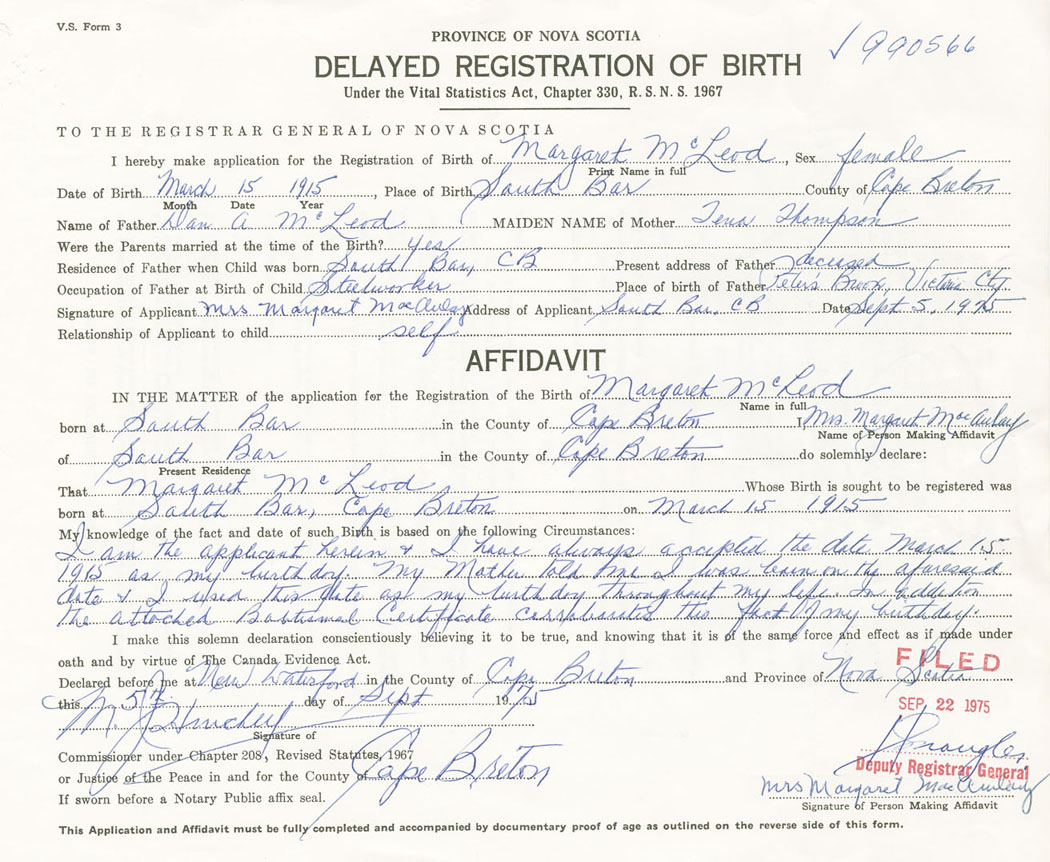 V.S. Form 3
PROVINCE OF NOVA SCOTIA
✓ 990566
DELAYED REGISTRATION OF BIRTH
Under the Vital Statistics Act, Chapter 330, R.S.N.S. 1967
TO THE REGISTRAR GENERAL OF NOVA SCOTIA
I hereby make application for the Registration of Birth of Margaret McLeod, Sex female
Print Name in full
Date of Birth March 15 1915, Place of Birth South Bar County of Cape Breton
Month Date Year
Name of Father Dan A McLeod MAIDEN NAME of Mother Tena Thompson
Were the Parents married at the time of the Birth? yes
Residence of Father when Child was born South Bar, CB Present address of Father deceased
Occupation of Father at Birth of Child Steelworker Place of birth of Father Peters Brook, Victoria Cty.
Signature of Applicant Mrs Margaret MacAulay Address of Applicant South Bar, CB Date Sept 5, 1975
Relationship of Applicant to child self
AFFIDAVIT
IN THE MATTER of the application for the Registration of the Birth of Margaret McLeod
Name in full
born at South Bar in the County of Cape Breton I, Mrs. Margaret MacAulay
Name of Person Making Affidavit
of South Bar in the County of Cape Breton do solemnly declare:
Present Residence
That Margaret McLeod Whose Birth is sought to be registered was
born at South Bar, Cape Breton on March 15 1915
My knowledge of the fact and date of such Birth is based on the following Circumstances:
I am the applicant herein & I have always accepted the date March 15
1915 as my birthday. My Mother told me I was born on the aforesaid
date & I used this date as my birthday throughout my life. In addition
the attached Baptismal Certificate corroborates this fact of my birthday.
I make this solemn declaration conscientiously believing it to be true, and knowing that it is of the same force and effect as if made under
oath and by virtue of The Canada Evidence Act.
FILED
Declared before me at New Waterford in the County of Cape Breton and Province of Nova Scotia
this 5th day of Sept 1975
SEP 22 1975
Signature of
Commissioner under Chapter 208, Revised Statutes, 1967
or Justice of the Peace in and for the County of Cape Breton
Deputy Registrar General
Mrs Margaret MacAulay
If sworn before a Notary Public affix seal.
Signature of Person Making Affidavit
This Application and Affidavit must be fully completed and accompanied by documentary proof of age as outlined on the reverse side of this form.